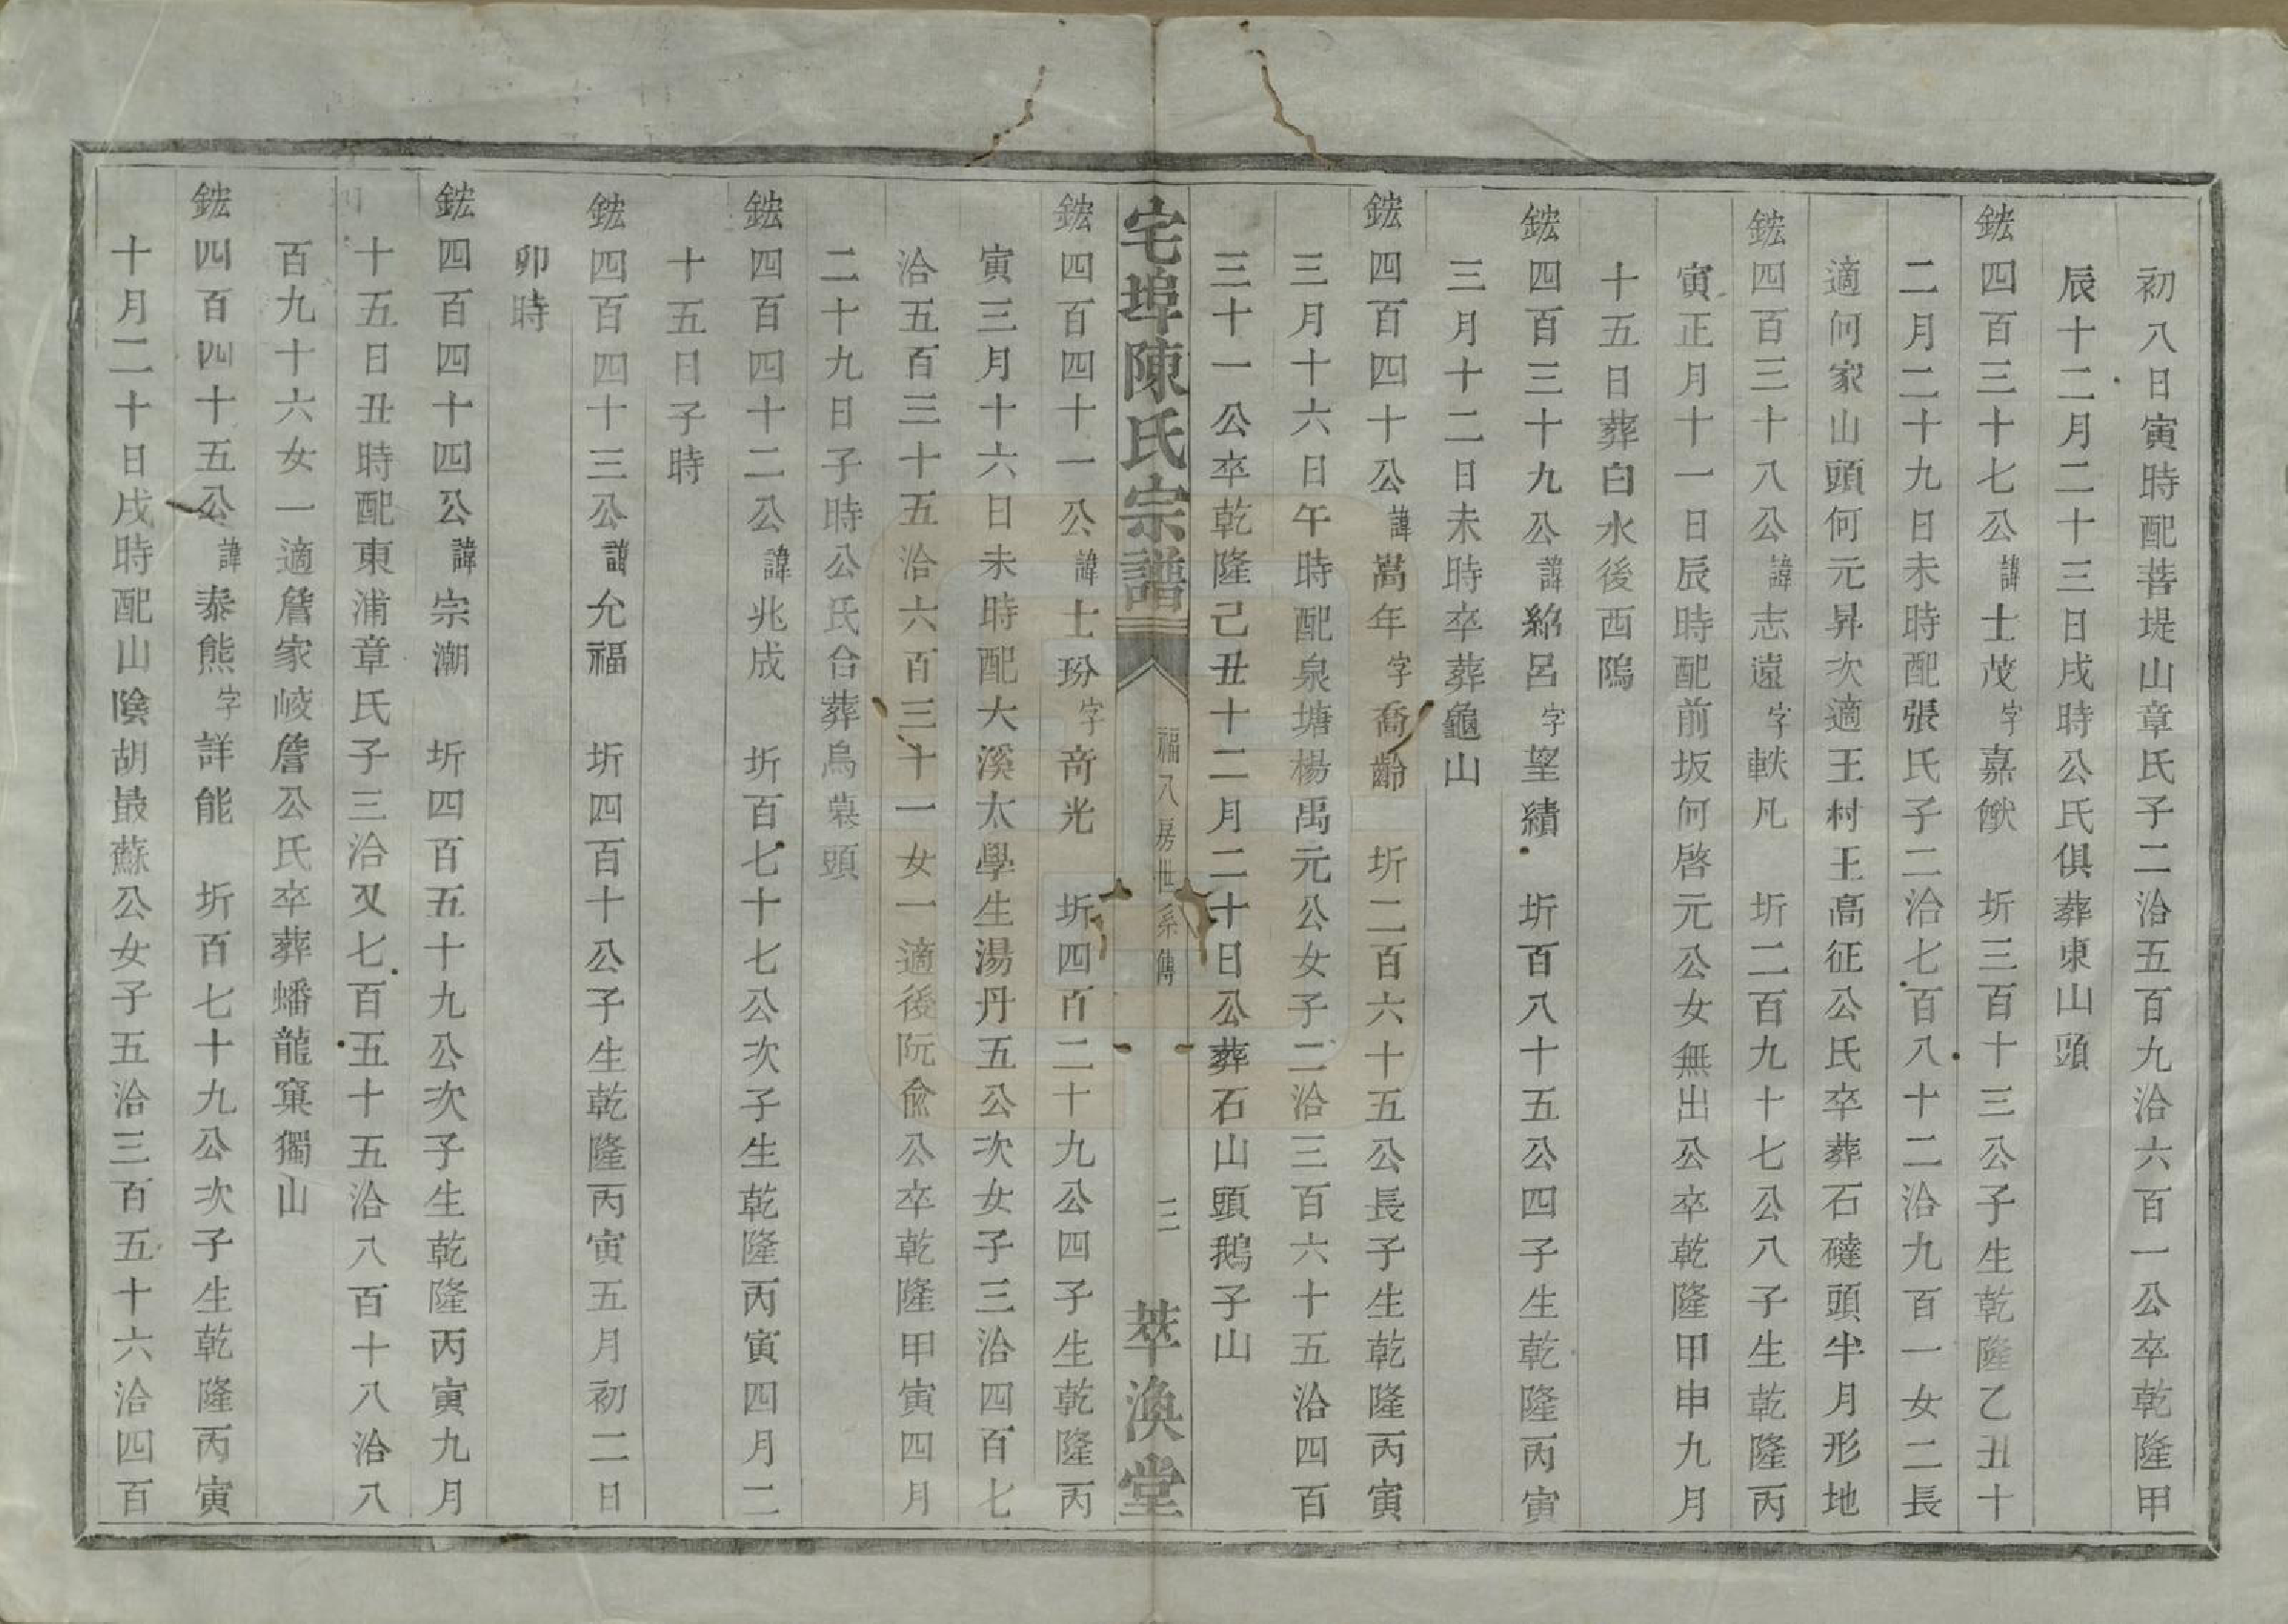 初八日寅時配菩堤山章氏子二洽五百九洽六百一公卒乾隆甲
辰十二月二十三日戌時公氏俱葬東山頭
鋐四百三十七公諱士茂字嘉猷 圻三百十三公子生乾隆乙丑十
二月二十九日未時配張氏子二洽七百八十二洽九百一女二長
適何家山頭何元昇次適王村王高征公氏卒葬石磓頭半月形地
鋐四百三十八公諱志遠字軼凡 圻二百九十七公八子生乾隆丙
寅正月十一日辰時配前坂何啓元公女無出公卒乾隆甲申九月
十五日葬白水後西塢
鋐四百三十九公諱紹呂字望績 圻百八十五公四子生乾隆丙寅
三月十二日未時卒葬龜山
鋐四百四十公諱嵩年字喬齡 圻二百六十五公長子生乾隆丙寅
三月十六日午時配泉塘楊禹元公女子二洽三百六十五洽四百
三十一公卒乾隆己丑十二月二十日公葬石山頭鵝子山
宅埠陳氏宗譜 福八房世系傳 三 萃渙堂
鋐四百四十一公諱士玢字奇光 圻四百二十九公四子生乾隆丙
寅三月十六日未時配大溪太學生湯丹五公次女子三洽四百七
洽五百三十五洽六百三十一女一適後阮兪公卒乾隆甲寅四月
二十九日子時公氏合葬烏墓頭
鋐四百四十二公諱兆成 圻百七十七公次子生乾隆丙寅四月二
十五日子時
鋐四百四十三公諱允福 圻四百十公子生乾隆丙寅五月初二日
卯時
鋐四百四十四公諱宗潮 圻四百五十九公次子生乾隆丙寅九月
十五日丑時配東浦章氏子三洽又七百五十五洽八百十八洽八
百九十六女一適詹家崚詹公氏卒葬蟠龍窠獨山
鋐四百四十五公諱泰熊字詳能 圻百七十九公次子生乾隆丙寅
十月二十日戌時配山陰胡最蘇公女子五洽三百五十六洽四百